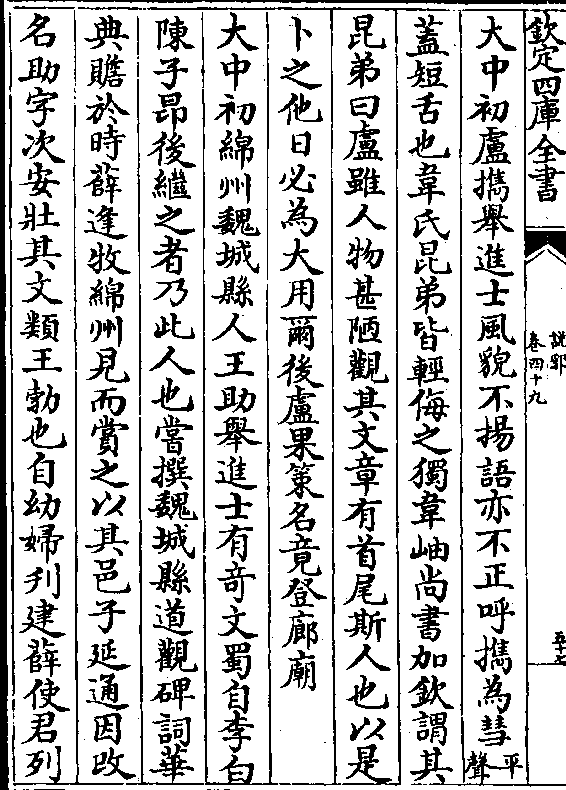 欽定四庫全書
說郛
卷四十九
五十七
大中初盧攜舉進士風貌不揚語亦不正呼攜為彗平聲
蓋短舌也韋氏昆弟皆輕侮之獨韋岫尚書加欽謂其
昆弟曰盧雖人物甚陋觀其文章有首尾斯人也以是
卜之他日必為大用爾後盧果策名竟登廊廟
大中初綿州魏城縣人王助舉進士有竒文蜀自李白
陳子昂後繼之者乃此人也嘗撰魏城縣道觀碑詞華
典贍於時薛逢牧綿州見而賞之以其邑子延通因改
名助字次安壯其文類王勃也自幼婦刋建薛使君列